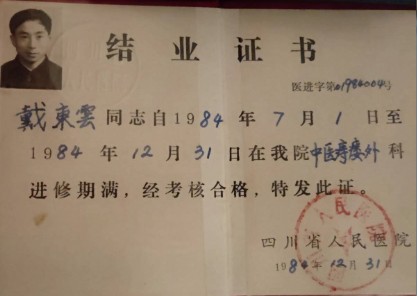 结业证书
医进字第01984004号
戴東雲同志自1984年7月1日至
1984年12月31日在我院中医痔瘘外科
进修期满,经考核合格,特发此证。
四川省人民医院
1984年12月31日